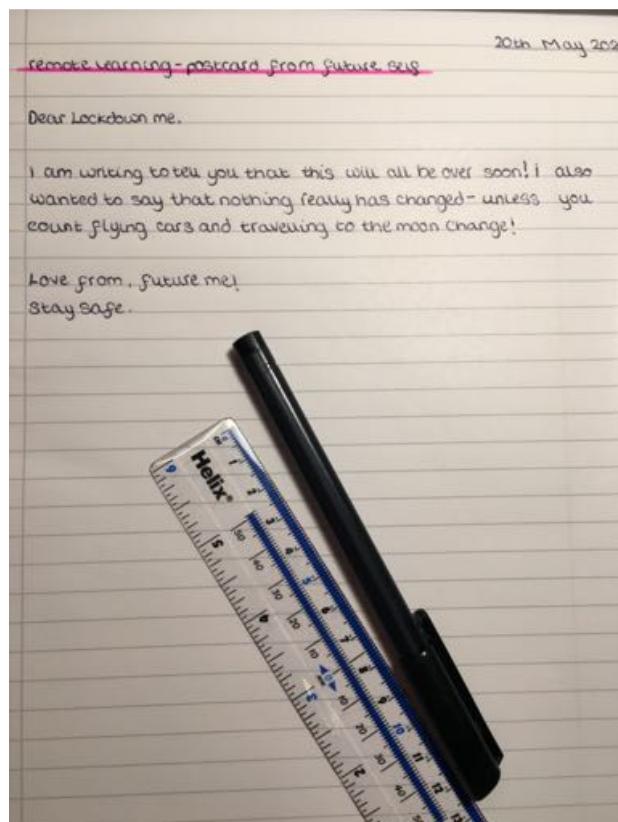 20th May 202
remote learning - postcard from future self
Dear Lockdown me.
I am writing to tell you that this will all be over soon! i also
wanted to say that nothing really has changed - unless you
count flying cars and travelling to the moon change!
Love from, future me!
Stay safe.
Helix®
cm 1 2 3 4 5 6 7 8 9 10 11 12 13
50 40 30 20 10 0 10 20 30 40 50
6 5 4 3 2